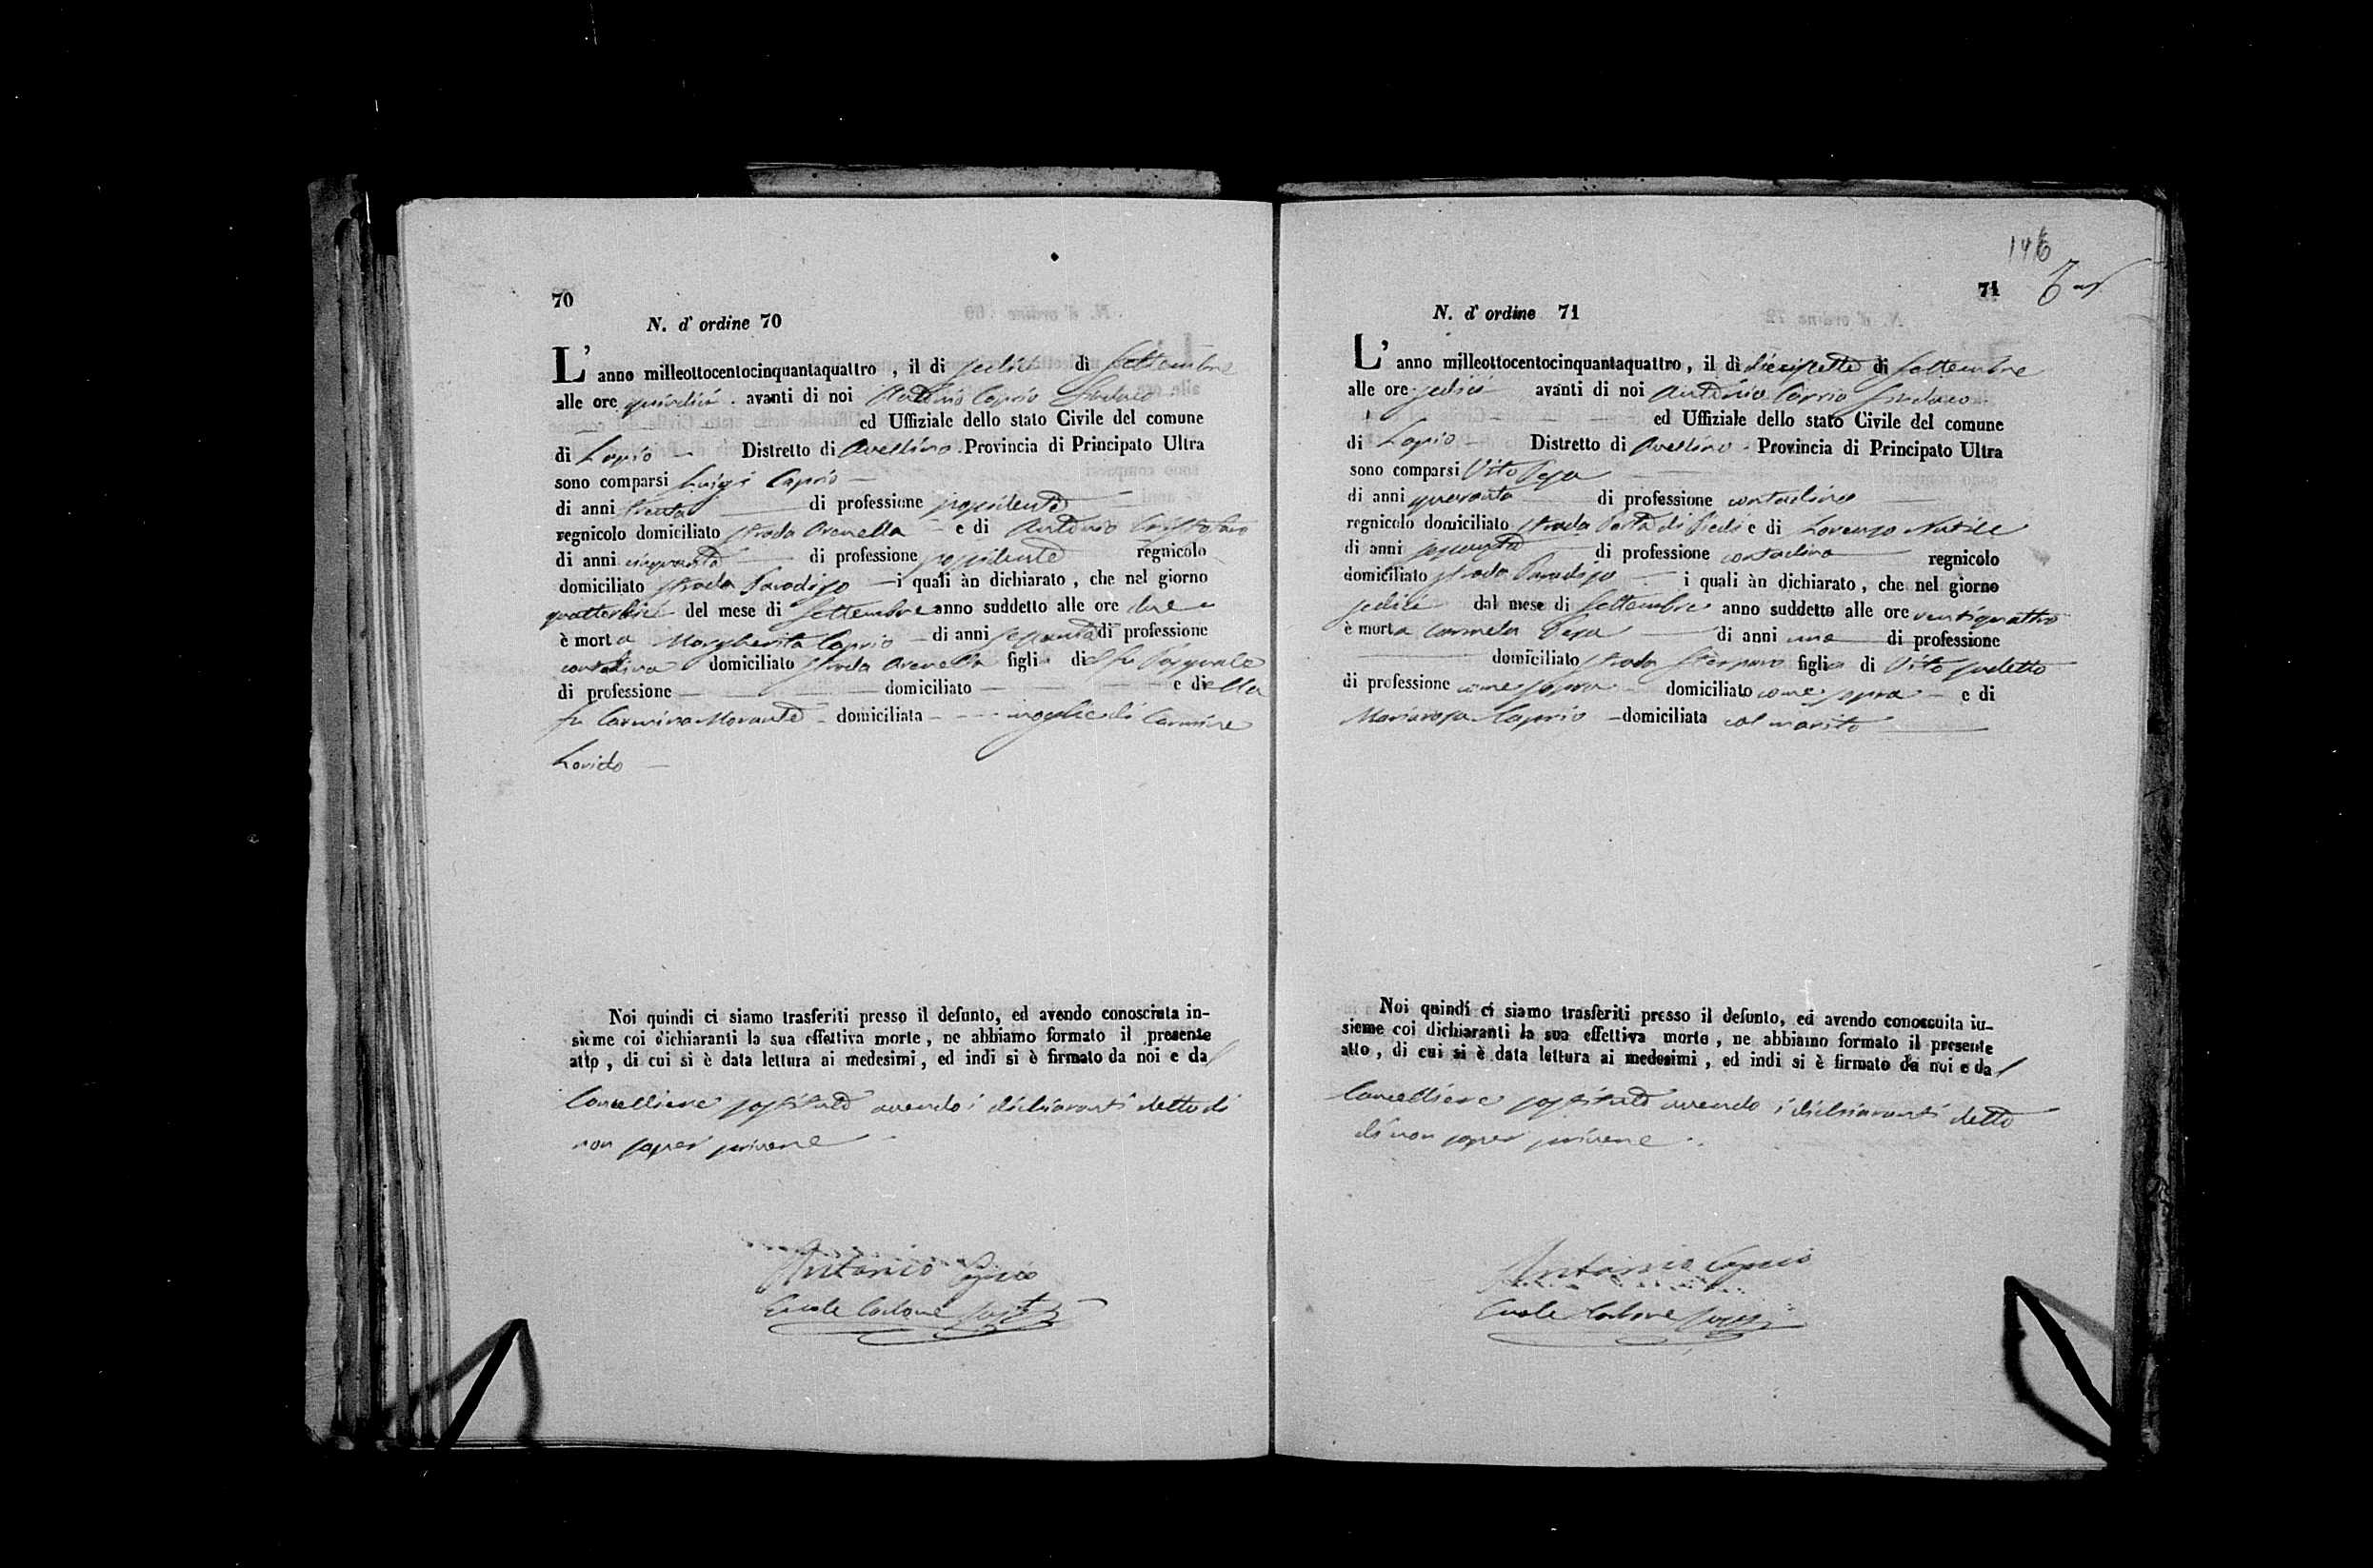 70
N. d' ordine 70
L' anno milleottocentocinquantaquattro , il di sedici di Settembre
alle ore quindici . avanti di noi Antonio Caprio Sindaco
ed Uffiziale dello stato Civile del comune
di Lapio Distretto di Avellino . Provincia di Principato Ultra
sono comparsi Luigi Caprio
di anni trenta di professione possidente
regnicolo domiciliato strada Arenella e di Antonio
di anni cinquanta di professione possidente regnicolo
domiciliato strada Paradiso i quali àn dichiarato , che nel giorno
quattordici del mese di Settembre anno suddetto alle ore due
è morta Margherita Caprio di anni sessanta di professione
contadina domiciliato strada Arenella figlia di fu Pasquale
di professione domiciliato e di ella
fu Carmina Morante domiciliata moglie di Carmine
Lovido
Noi quindi ci siamo trasferiti presso il defunto, ed avendo conosciuta in-
sieme coi dichiaranti la sua effettiva morte , ne abbiamo formato il presente
atto , di cui si è data lettura ai medesimi , ed indi si è firmato da noi e dal
Cancelliere sostituto avendo i dichiaranti detto di
non saper scrivere
Antonio Caprio
Ercole Carbone Sost
146
71
N. d' ordine 71
L' anno milleottocentocinquantaquattro , il dì diecissette di Settembre
alle ore sedici avanti di noi Antonio Caprio Sindaco
ed Uffiziale dello stato Civile del comune
di Lapio Distretto di Avellino . Provincia di Principato Ultra
sono comparsi Vito Pesa
di anni quaranta di professione contadino
regnicolo domiciliato strada Porta di Piedi e di Lorenzo Nutile
di anni sessanta di professione contadino regnicolo
domiciliato strada Paradiso i quali àn dichiarato , che nel giorno
sedici dal mese di Settembre anno suddetto alle ore ventiquattro
è morta Carmela Pesa di anni una di professione
domiciliato strada figlia di Vito sudetto
di professione come sopra domiciliato come sopra e di
Mariarosa Caprio domiciliata col marito
Noi quindi ci siamo trasferiti presso il defunto, ed avendo conosciuita iu-
sieme coi dichiaranti la sua effettiva morte , ne abbiamo formato il presente
atto , di cui si è data lettura ai medesimi , ed indi si è firmato da noi e dal
Cancelliere sostituto avendo i dichiaranti detto
di non saper scrivere .
Antonio Caprio
Ercole Carbone Sost